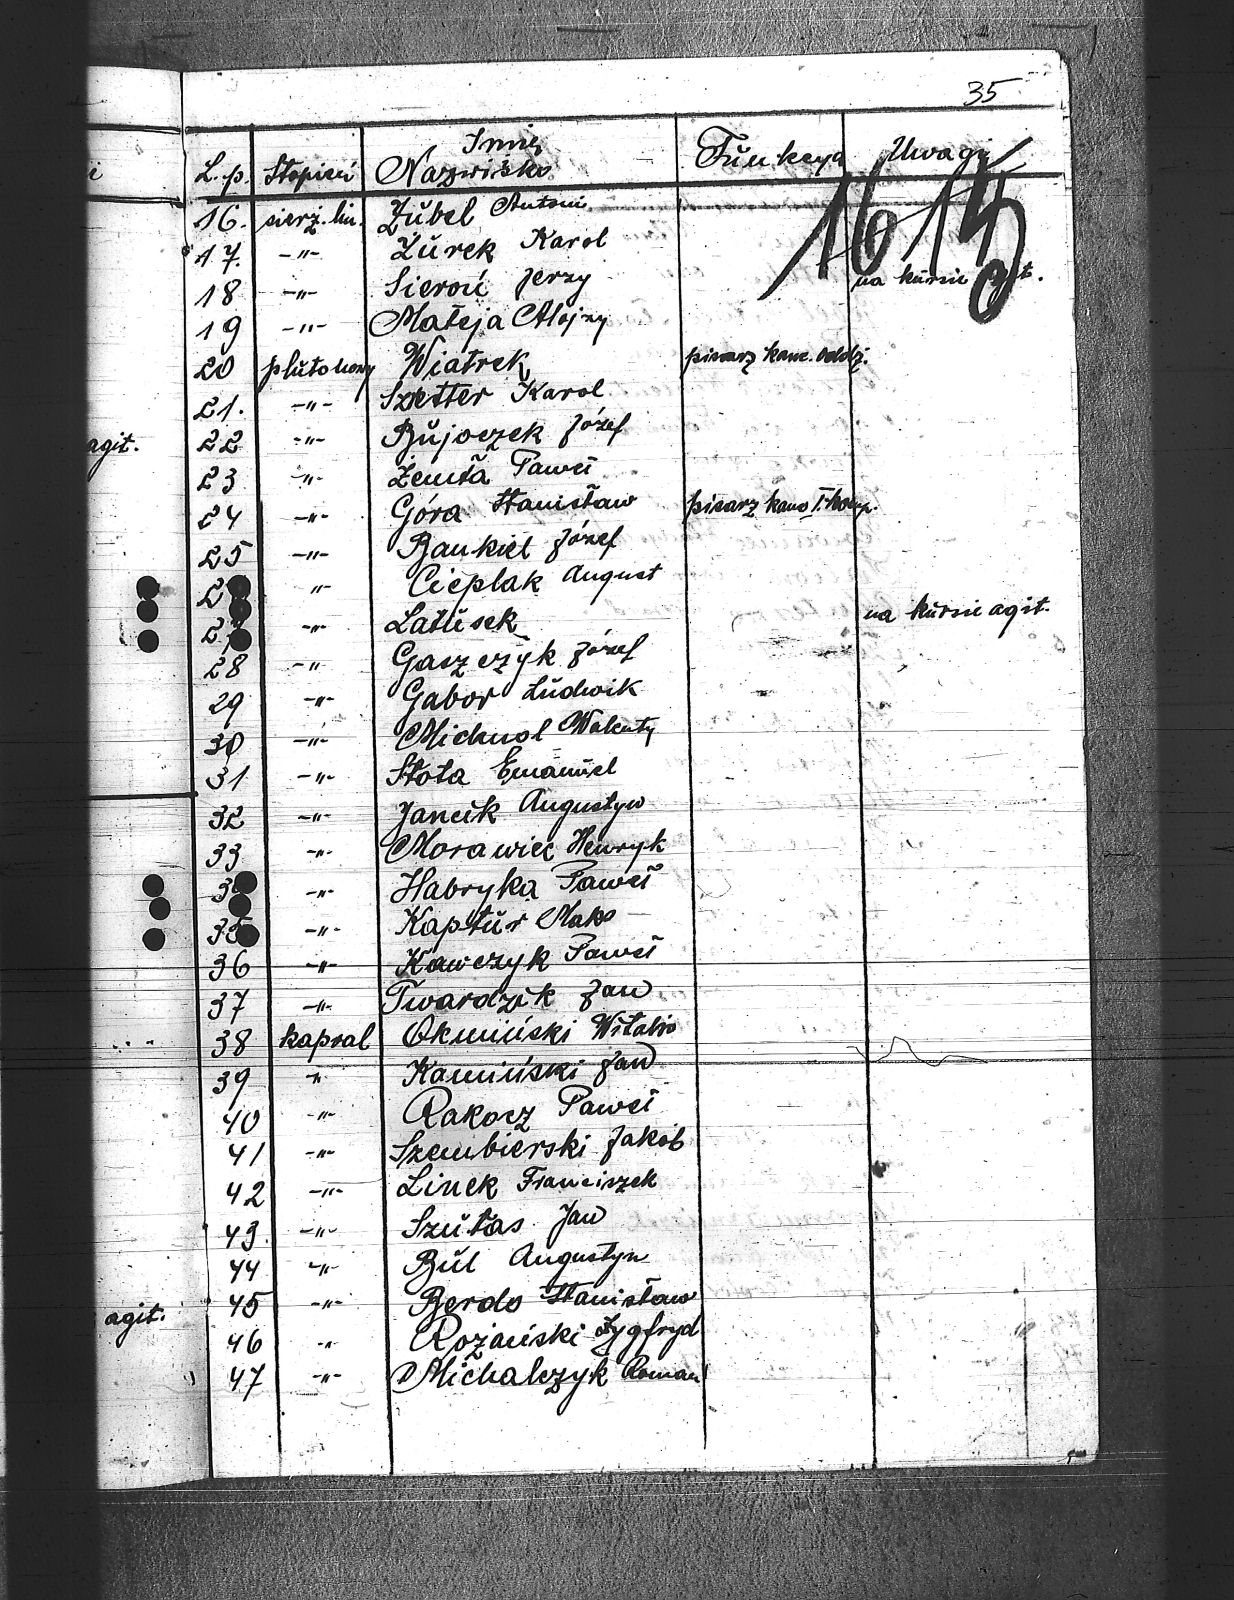 35
Imię
L.p. Stopień Nazwisko Funkcya Uwagi
16 14
16. sierż. lin. Żubel Antoni
17. -"- Żurek Karol
18 -"- Sieroń Jerzy na kursie agit.
19 -"- Mateja Alojzy
20 plutonowy Wiatrek pisarz kanc. oddz.
21. -"- Szetter Karol
22 -"- Bujoczek Józef
23 -"- Żemła Paweł
24 -"- Góra Stanisław pisarz kanc I. komp.
25 -"- Bankiel Józef
2 -"- Cieplak August
2 -"- Latusek na kursie agit.
28 -"- Gaszczyk Józef
29 -"- Gabor Ludwik
30 -"- Michnol
31 -"- Stota Emanuel
32 -"- Jancik Augustyn
33 -"- Morawiec Henryk
3 -"- Habryka Paweł
35 -"- Kaptur Mako
36 -"- Kawczyk Paweł
37 -"- Twardzik Jan
38 kapral Okmiński
39 -"- Kamiński Jan
40 -"- Rakocz Paweł
41 -"- Szembierski Jakób
42 -"- Linek Franciszek
43. -"- Szułas Jan
44 -"- Bul Augustyn
45 -"- Berdo Stanisław
46 -"- Rożański Zygfryd
47 -"- Michalczyk Roman
agit.
agit.